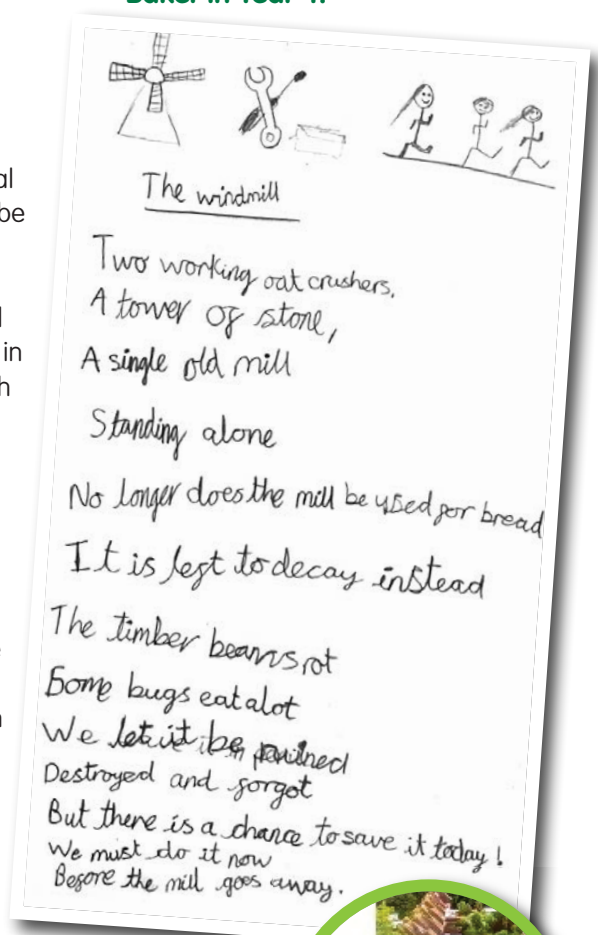 Baker in Year 4.
al
be
in
h
The windmill
Two working oat crushers.
A tower of stone,
A single old mill
Standing alone
No longer does the mill be used for bread
It is left to decay instead
The timber beams rot
Some bugs eat alot
We let it be ruined
Destroyed and forgot
But there is a chance to save it today!
We must do it now
Before the mill goes away.